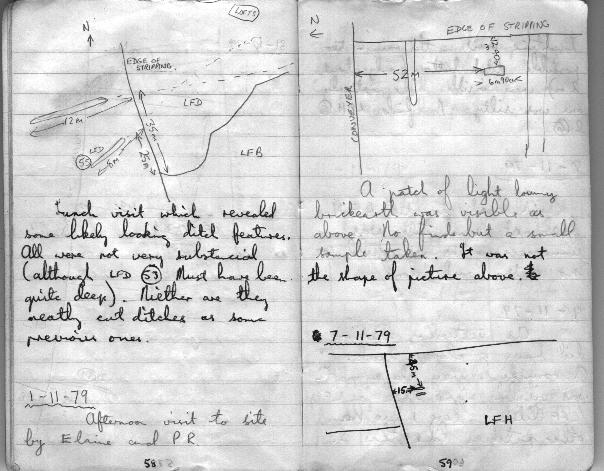 LOFTS
N
EDGE OF
STRIPPING
LFD
12m
35m
LFD
53
8m
25m
LFB
Lunch visit which revealed
some likely looking ditch features.
All were not very substancial
(although LFD 53 Must have been
quite deep). Niether are they
neatly cut ditches as some
previous ones.
1-11-79
Afternoon visit to site
by Elaine and P.R.
58
N
EDGE OF STRIPPING
52m
CONVEYER
A patch of light loamy
brickearth was visible as
above. No finds but a small
sample taken. It was not
the shape of picture above.
7-11-79
15m
LFH
59